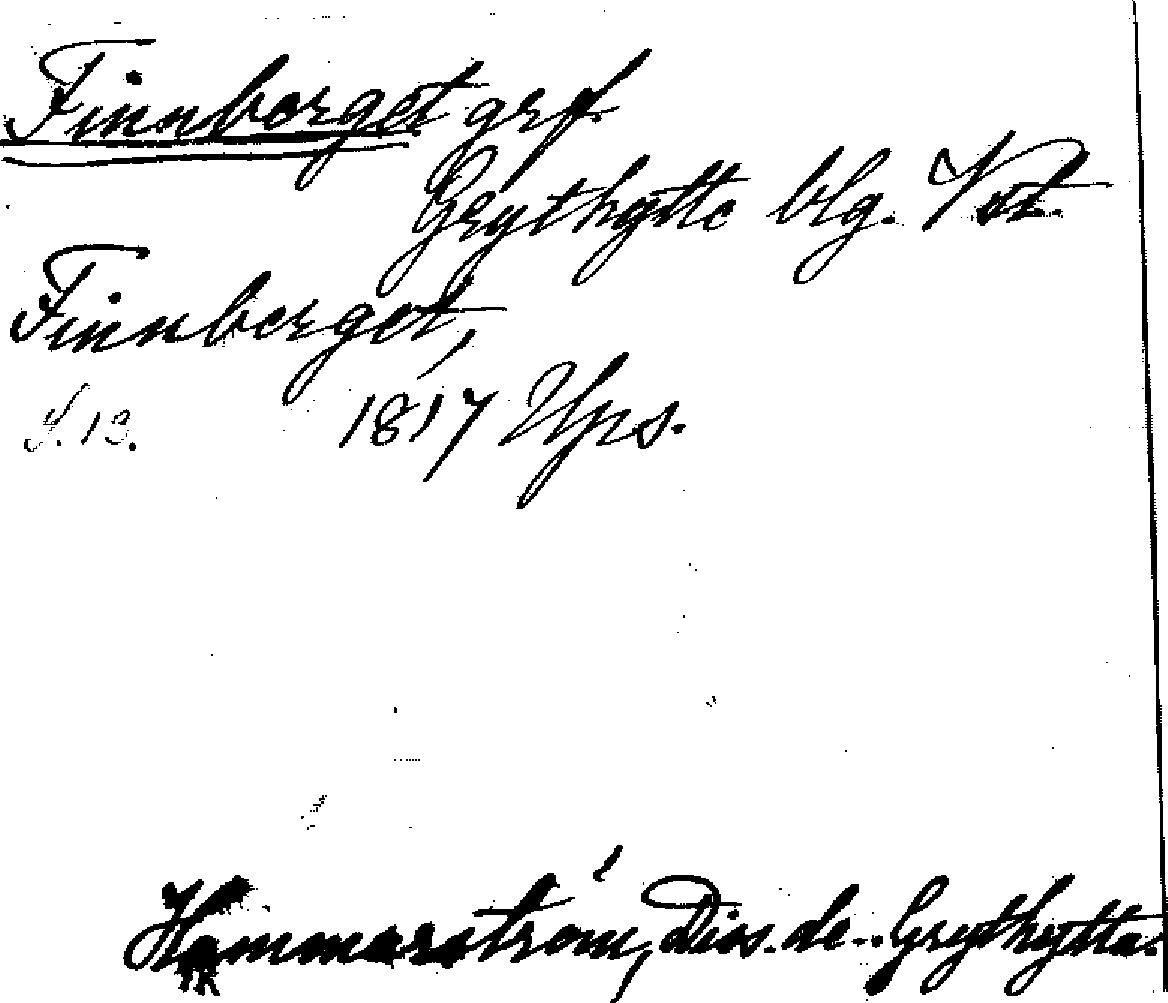 Finnberget grf.
Grythytte blg. Vstl.
Finnberget,
S. 13. 1817 Ups.
Hammarström, Diss. de.. Grythytta.